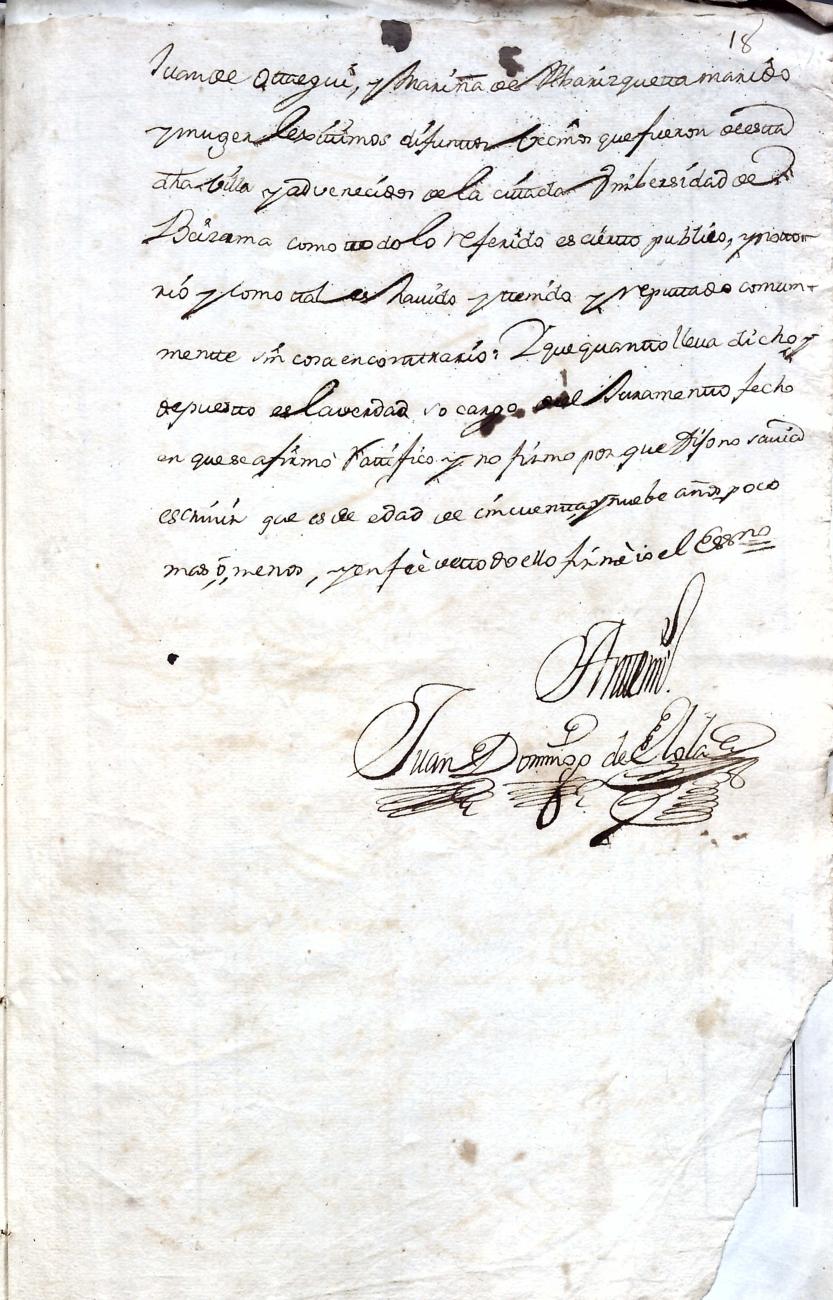 18
Juan de Ottegui, y Mariña de Albarizquetta marido
y muger lexittimos difunttos vecinos que fueron de estta
dha villa y advenecidos de la cittada Vnibersidad de
Beizama como ttodo lo referido es ciertto publico, y notto-
rio y como ttal es havido y ttenido y rreputtado comun-
mente sin cosa en conttrario: Y que quantto lleva dicho y
depuestto es la verdad so cargo del Juramentto fecho
en que se afirmò Rattifico y no firmo por que Dijo no savia
escrivir que es de edad de cincuentta y nuebe años poco
mas, ò, menos, y en feè de ttodo ello firmè io el Essno
Anttemi.
Juan Domingo de Elola